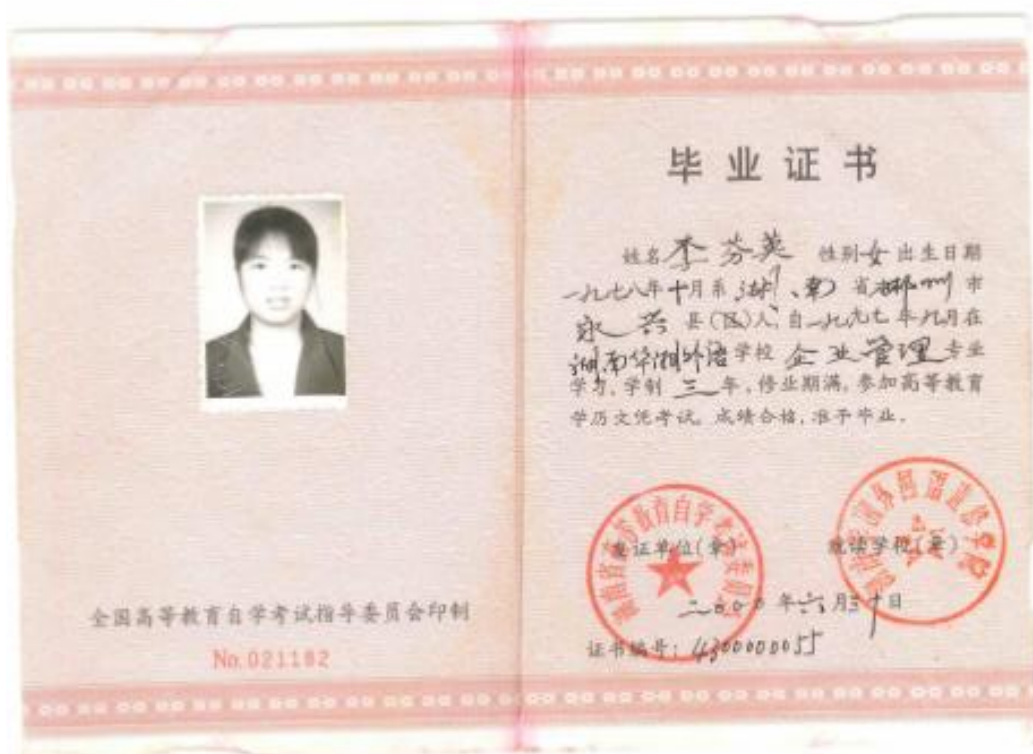 全国高等教育自学考试指导委员会印制
No.021182
毕业证书
姓名 李芬英 性别 女 出生日期
一九七八年十月系 湖南 省 郴州 市
永兴 县(区)人,自一九九七年九月在
湖南华湘外语学校 企业管理 专业
学习,学制 三 年,修业期满,参加高等教育
学历文凭考试,成绩合格,准予毕业。
发证单位(章) 就读学校(章)
二000年六月三十日
证书编号:4300000055